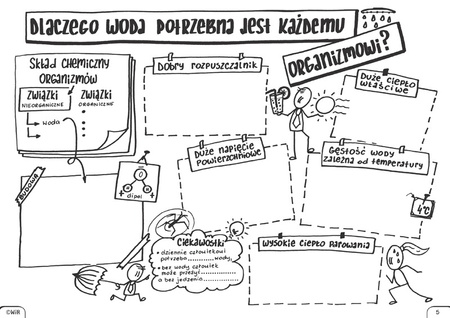 DLACZEGO WODA POTRZEBNA JEST KAŻDEMU
ORGANIZMOWI?
SKŁAD CHEMICZNY
ORGANIZMÓW
ZWIĄZKI
NIEORGANICZNE
ZWIĄZKI
ORGANICZNE
Woda
DOBRY ROZPUSZCZALNIK
DUŻE CIEPŁO
WŁAŚCIWE
DUŻE NAPIĘCIE
POWIERZCHNIOWE
GĘSTOŚĆ WODY
ZALEŻNA OD TEMPERATURY
4°C
BUDOWA
O
+ +
dipol
CIEKAWOSTKI
• dziennie człowiekowi
potrzeba ........ wody,
• bez wody człowiek
może przeżyć ........
a bez jedzenia ........
WYSOKIE CIEPŁO PAROWANIA
©WiR
5